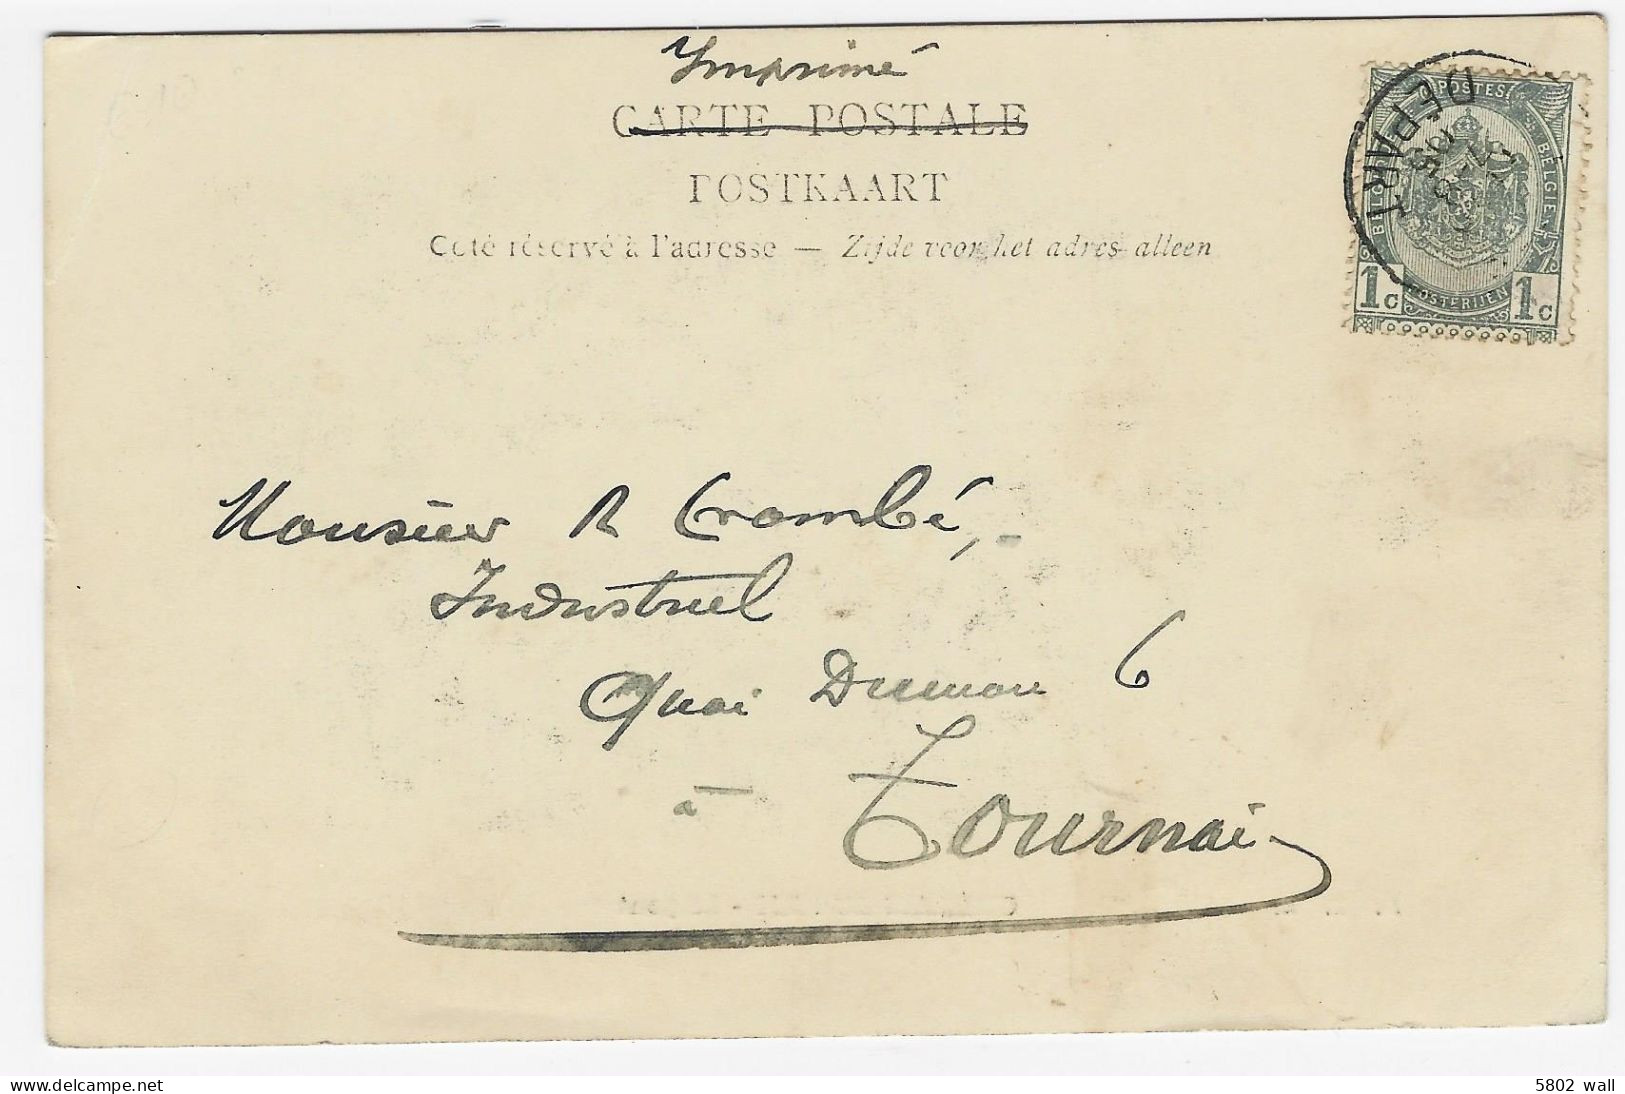 Imprimé
CARTE POSTALE
POSTKAART
Côté réservé à l'adresse — Zijde voor het adres alleen
DEPART
POSTES
BELGIQUE
BELGIE
POSTERIJEN
1c 1c
Monsieur R Crombé,
Industriel
Quai Dumon 6
à Tournai
5802 wall